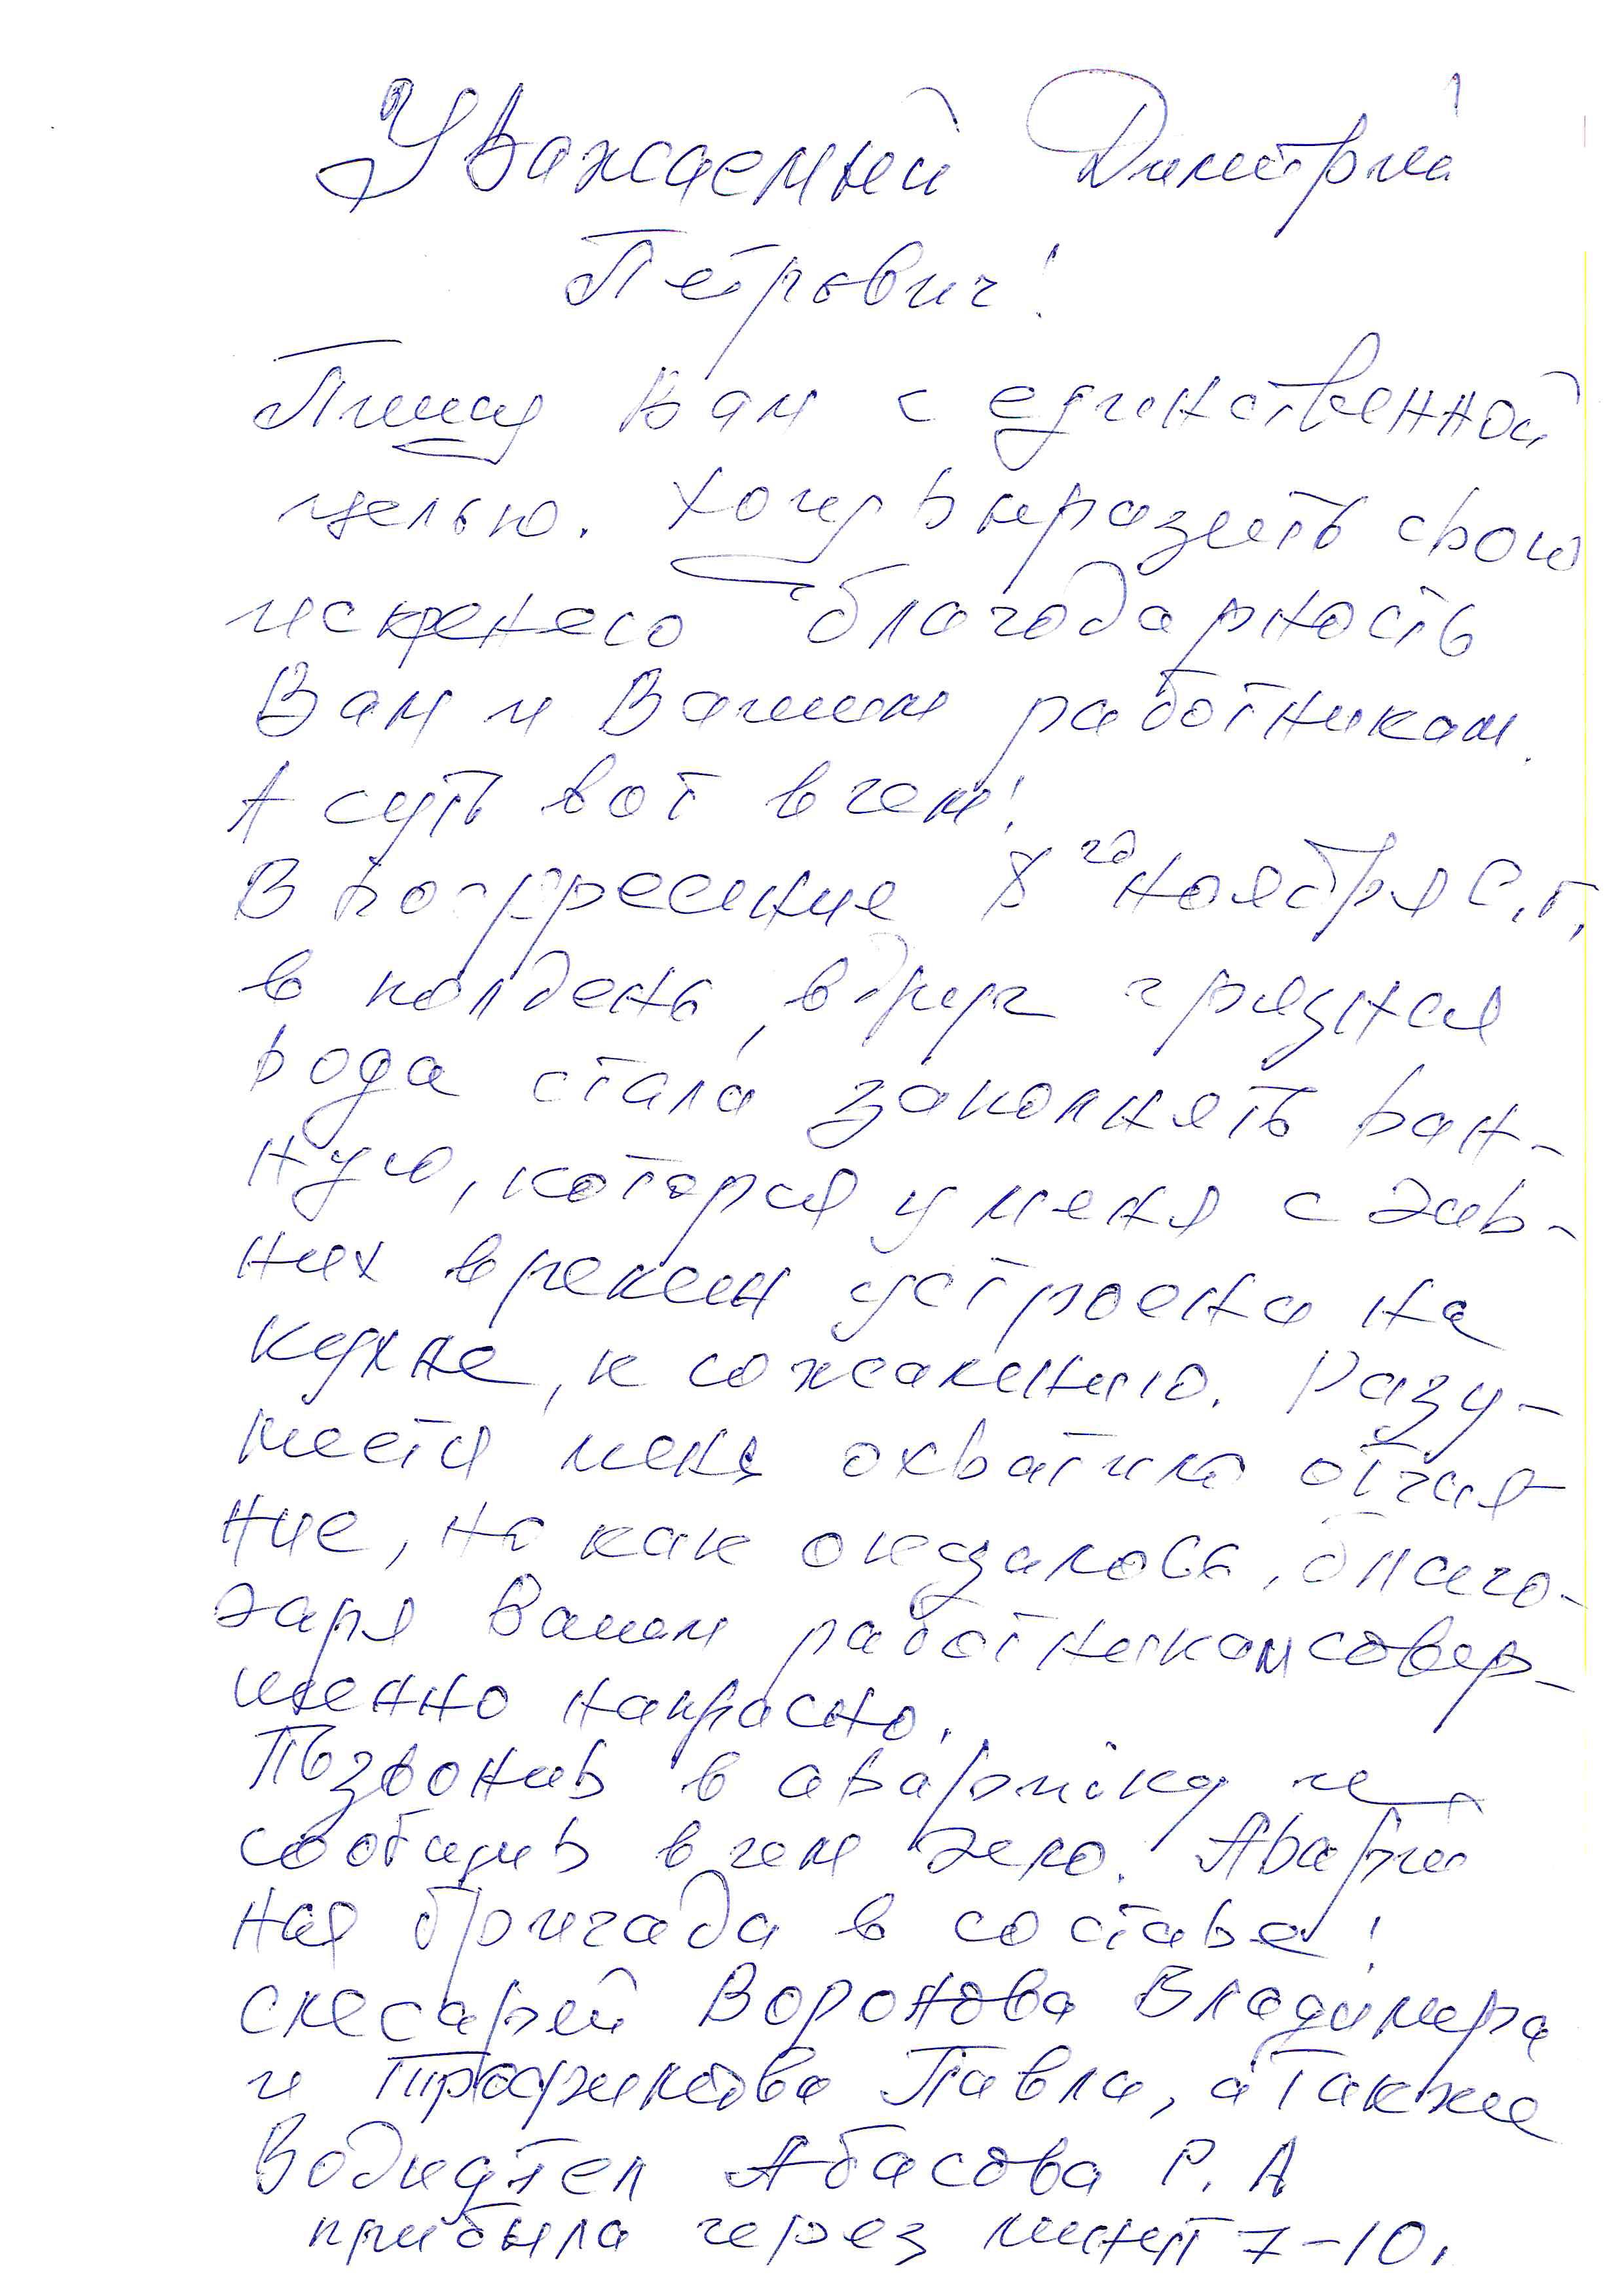 Уважаемый Димитрий
Петрович!
Пишу Вам с единственной
целью. Хочу выразить свою
искренею благодарность
Вам и Вашим работникам.
А суть вот в чем!
В воскресение 8го ноября с.г.
в полдень, вдруг грязная
вода стала заполнять ван-
ную, которая у меня с дав-
них времен устроена на
кухне, к сожалению. Разу-
меется меня охватило отчая-
ние, но как оказалось, благо-
даря Вашим работникам совер-
шенно напрасно.
Позвонив в аварийку и
сообщив в чем дело. Аварий
ная бригада в составе!
слесарей Воронова Владимира
и Трофимова Павла, а также
Водидтел Абасова Р. А
прибыла через минут 7-10.